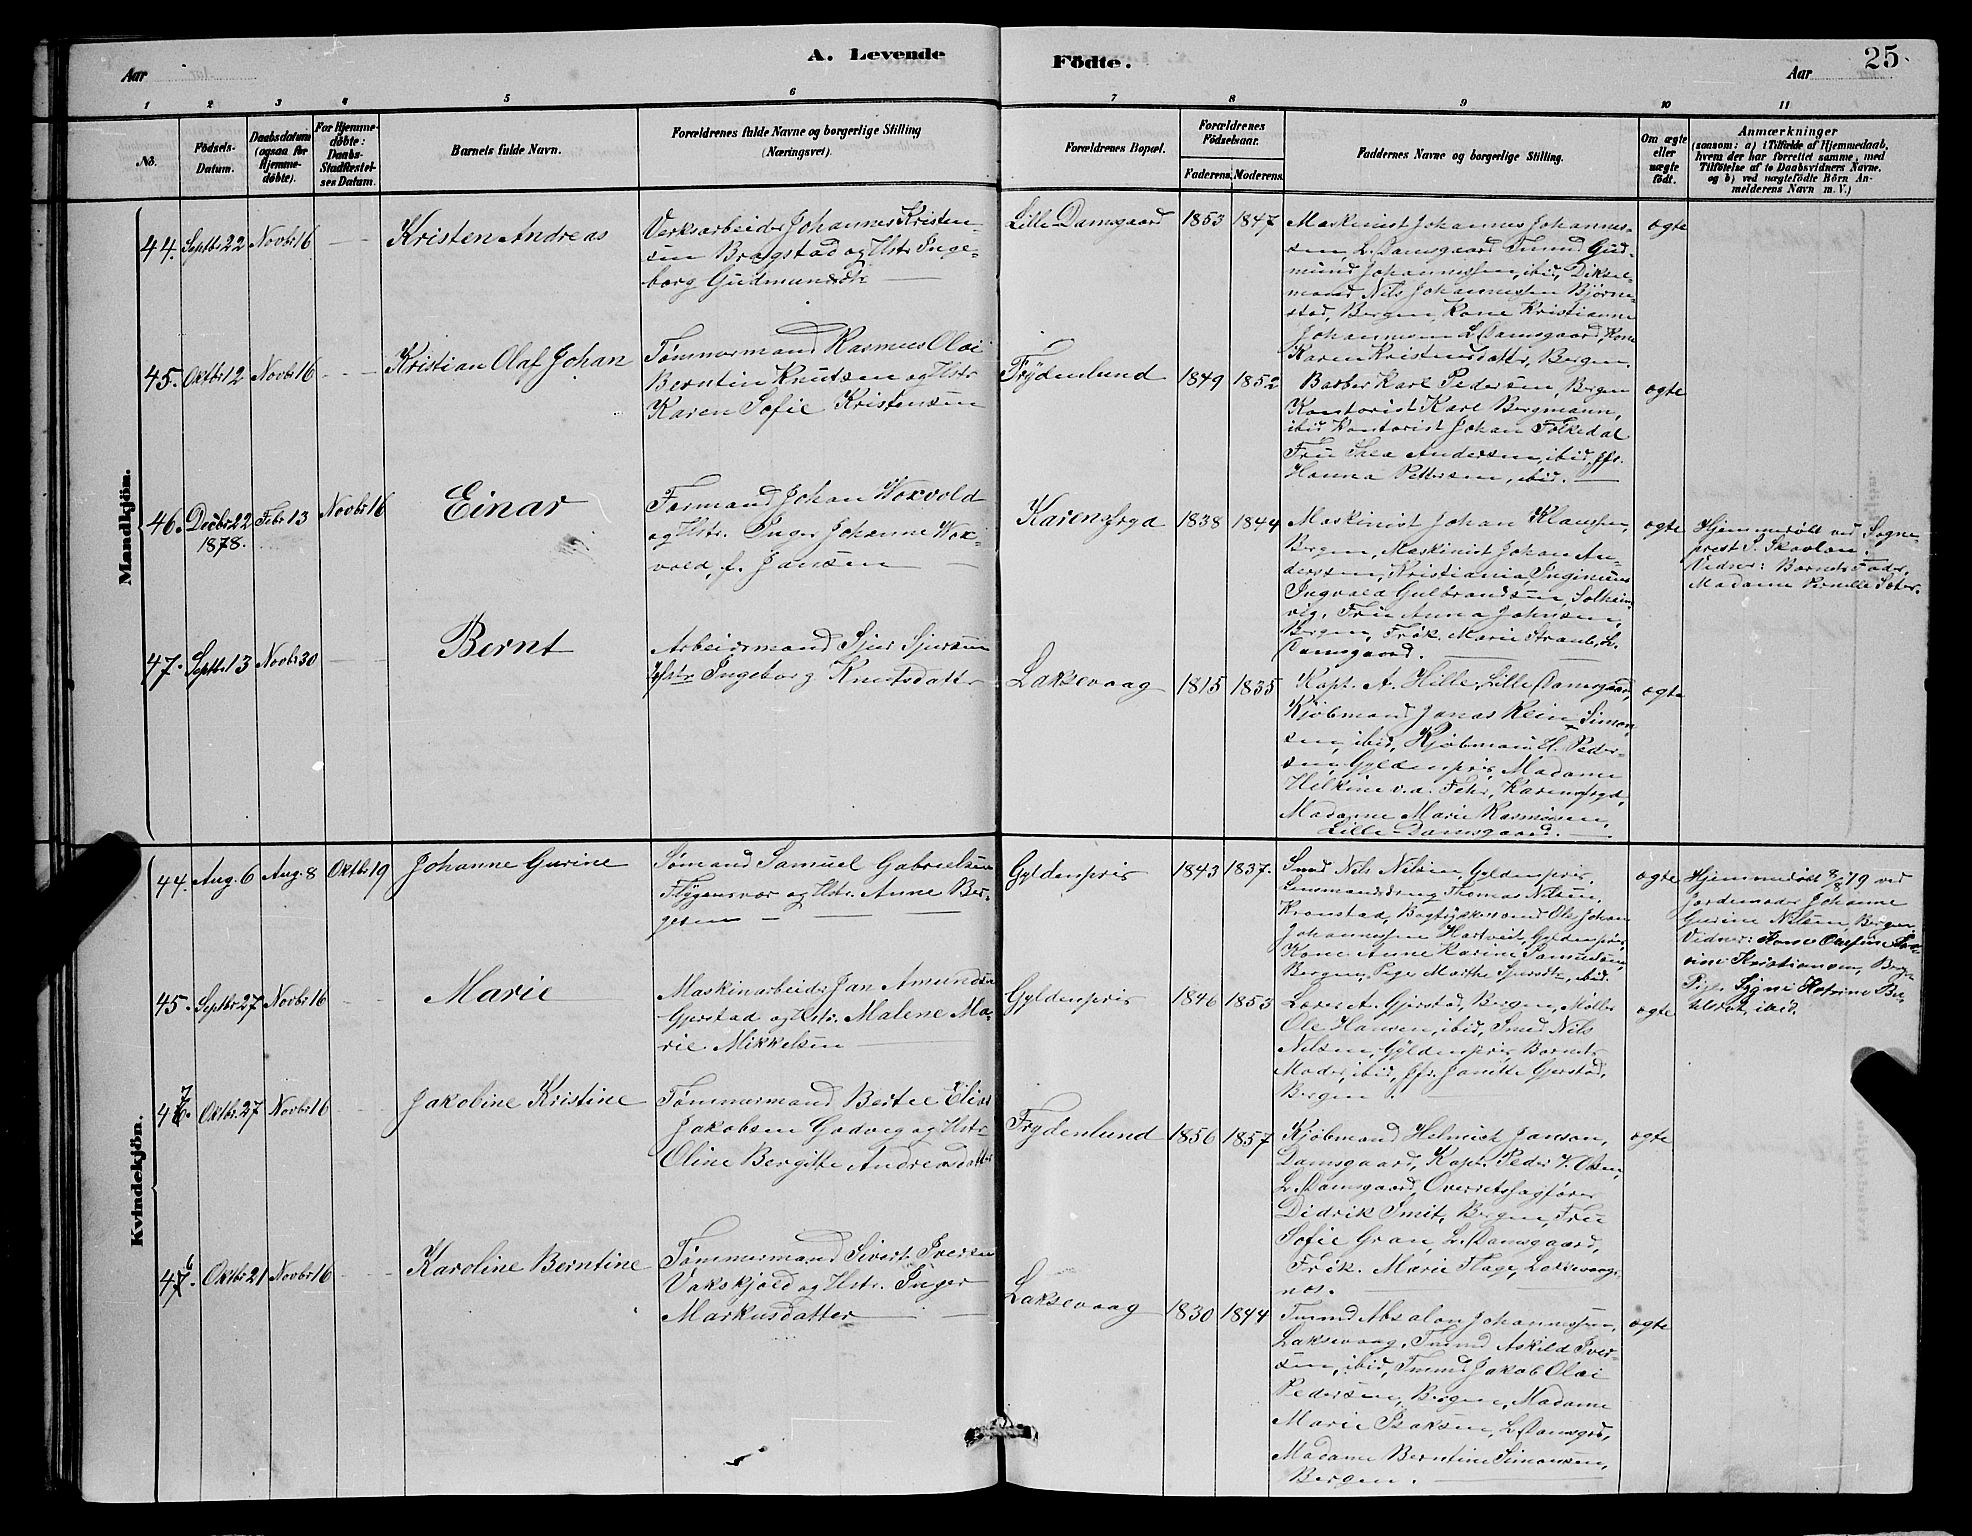 A. Levende
Aar
1 2 3 4 5 6
No.
Födsels-Datum.
Daabsdatum (ogsaa for Hjemme-döbte).
For Hjemme-döbte: Daabs-Stadfæstel-ses Datum.
Barnets fulde Navn.
Forældrenes fulde Navne og borgerlige Stilling
(Næringsvei).
Födte.
Aar
25
7 8 9 10 11
Forældrenes Bopæl.
Forældrenes Födselsaar.
Faderens. Moderens.
Faddernes Navne og borgerlige Stilling.
Om ægte eller uægte födt.
Anmærkninger
(saasom: a) i Tilfælde af Hjemmedaab,
hvem der har forrettet samme, med
Tilföielse af to Daabsvidners Navne,
og b) ved uægtefödte Börn An-
melderens Navn m. V.)
Mandkjön.
44. Septbr 22 Novbr 16 Kristen Andreas
Verksarbeider Johannes Kristen-
sen Bragstad og Hstr Inge-
borg Gudmundsdtr
Lille Damsgaard 1853 1847
Maskinist Johannes Johannes-
sen, L. Damsgaard, Tmmd Gud-
mund Johannessen, ibid,
mand Nils Johannessen Bjørne-
stad, Bergen, Kone Kristianne
Johannesen L. Damsgaard, Kone
Karen Kristensdatter, Bergen.
ægte
45. Oktbr 12 Novbr 16 Kristian Olaf Johan
Tømmermand Rasmus Olai
Berntin Knutsen og Hstr
Karen Sofie Kristensen
Frydenlund 1849 1852
Barber Karl Pedersen, Bergen
Kontorist Karl Bergmann,
ibid Kontorist Johan Folkedal
Fru Thea Andersen, ibid, Jfr.
Hanna Pettersen, ibid.
ægte
46. Decbr 22 Febr 13 Novbr 16 Einar
1878.
Formand Johan Woxvold
og Hstr. Inger Johanne Wox-
vold, f. Jansen
Karensfryd 1838 1844
Maskinist Johan Klausen,
Bergen, Maskinist Johan An-
dersen, Kristiania Ingeniør
Ingvald Gulbrandsen, Solheims-
vig, Fru Anna Johnsen,
Bergen, Frøk. Marie Straube, L.
Damsgaard.
ægte
Hjemmedøbt ved Sogne-
prest P. Skavlan.
Vidner: Barnets Fader,
Madame Pernille Sæter.
47. Septbr 13 Novbr 30 Bernt
Arbeidsmand Sjur Sjursen
Hstr Ingeborg Knutsdatter
Laksevaag 1815 1835
Kapt. A. Hille, Lille Damsgaard,
Kjøbmand Jonas Rein Simon-
sen, ibid, Kjøbmand H. Peder-
sen, Gyldenpris, Madame
Helkine v.d. Fehr, Karensfryd,
Madame Marie Rasmusen,
Lille Damsgaard.
ægte
Kvindekjön.
44. Aug. 6 Aug. 8 Oktbr 19 Johanne Gurine
Sømand Samuel Gabrielsen
Flygansvær og Hstr. Anne Ber-
gesen
Gyldenpris 1843 1837.
Smed Nils Nilsen, Gyldenpris,
Lensmandsdreng Thomas Nilsen,
Kronstad, Bogtrykkersvend Ole Johan
Johannessen Hartveit, Gyldenpris,
Kone Anne Karine Samuelsen,
Bergen, Pige Marthe Sjursdtr, ibid.
ægte
Hjemmedøbt 8/8 79 ved
Jordemoder Johanne
Gurine Nilsen, Bergen
Vidner: Kone
Kristiansen, Bergen
Pige
ibid.
45. Septbr 27 Novbr 16 Marie
Maskinarbeider Jan Amundsen
Gjerstad og Hstr. Malene Ma-
rie Mikkelsen
Gyldenpris 1846 1853
Lærer A. Gjerstad, Bergen, Møller
Ole Hansen, ibid, Smed Nils
Nilsen, Gyldenpris, Barnets
Moder, ibid, Jfr. Janikke Gjerstad,
Bergen.
ægte
467. Oktbr. 27 Novbr 16 Jakobine Kristine
Tømmermand Bertel Elias
Jakobsen Godvig og Hstr
Oline Bergitte Andreasdatter
Frydenlund 1856 1857
Kjøbmand Helmich Janson,
Damsgaard, Kapt. Peder V. Olsen,
L. Damsgaard, Overretssagfører
Didrik Smit, Bergen, Fru
Sofie Gran, L. Damsgaard,
Frøk. Marie Hage, Laksevaag-
nes.
ægte
476. Oktbr. 21 Novbr 16 Karoline Berntine
Tømmermand Sivert Iversen
Vakskjold og Hstr. Inger
Markusdatter
Laksevaag 1830 1844
Tmmd Absalon Johannessen,
Laksevaag, Tmmd Askild Iver-
sen, ibid, Tmmd Jakob Olai
Pedersen, Bergen, Madame
Marie Isaksen, L. Damsgrd,
Madame Berntine Simonsen,
Bergen.
ægte